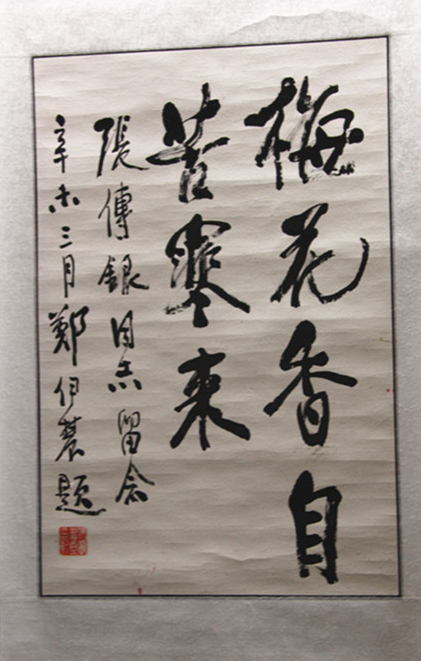 梅花香自
苦寒来
張傳銀同志留念
辛未三月鄭伊農題